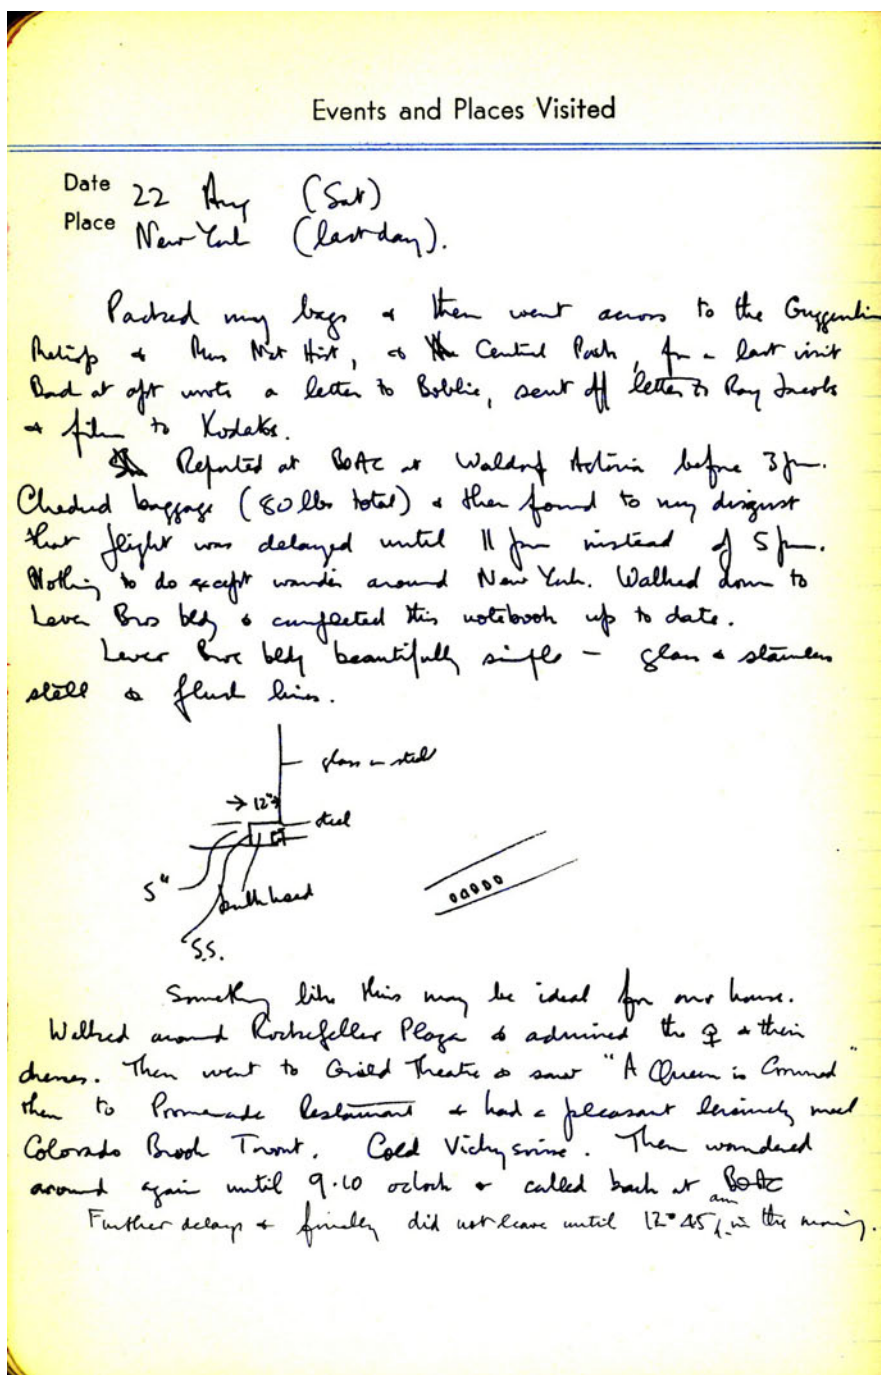 Events and Places Visited
Date 22 Aug (Sat)
Place New York (last day).
Packed my bags & then went across to the Guggenheim
& Mus Nat Hist, & Central Park, for a last visit
Back at apt wrote a letter to Bobbie, sent off letter to Ray Jacobs
& film to Kodaks.
Reported at BOAC at Waldorf Astoria before 3 pm.
Checked baggage (80 lbs total) & then found to my disgust
that flight was delayed until 11 pm instead of 5 pm.
Nothing to do except wander around New York. Walked down to
Lever Bros bldg & completed this notebook up to date.
Lever Bros bldg beautifully simple – glass & stainless
steel & flush lines.
glass in steel
→ 12"
steel
5"
bulkhead
S.S.
Something like this may be ideal for our house.
Walked around Rockefeller Plaza & admired the ♀ & their
dresses. Then went to Guild Theatre & saw "A Queen is Crowned"
then to Promenade Restaurant & had a pleasant leisurely meal
Colorado Brook Trout. Cold Vichysoise. Then wandered
around again until 9.10 oclock & called back at BOAC
Further delays & finally did not leave until 12.45 am in the morning.